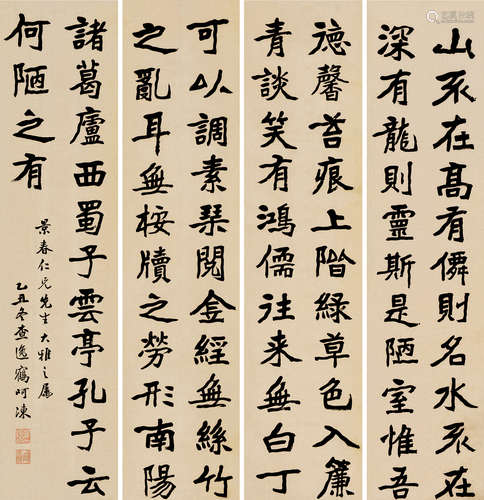 山不在高有僊則名水不在
深有龍則靈斯是陋室惟吾
德馨苔痕上階綠草色入簾
青談笑有鴻儒往来無白丁
可以調素琹閱金經無絲竹
之亂耳無桉牘之勞形南陽
諸葛廬西蜀子雲亭孔子云
何陋之有
景春仁兄先生大雅之屬
乙丑冬查逸鶴呵凍